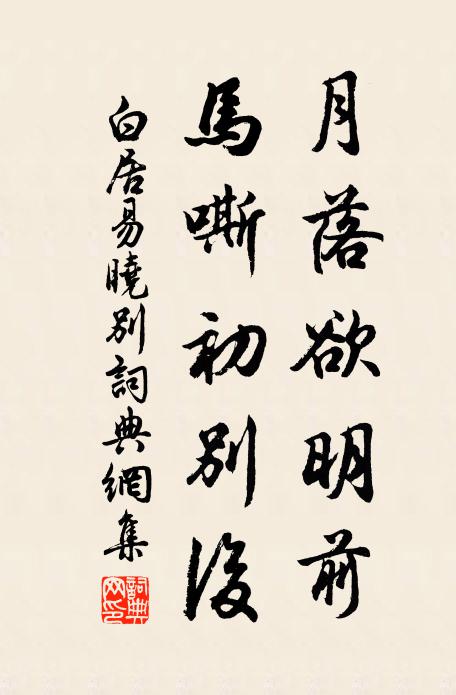 月落欲明前
馬嘶初別後
白居易曉別詞典網集
詞典网印